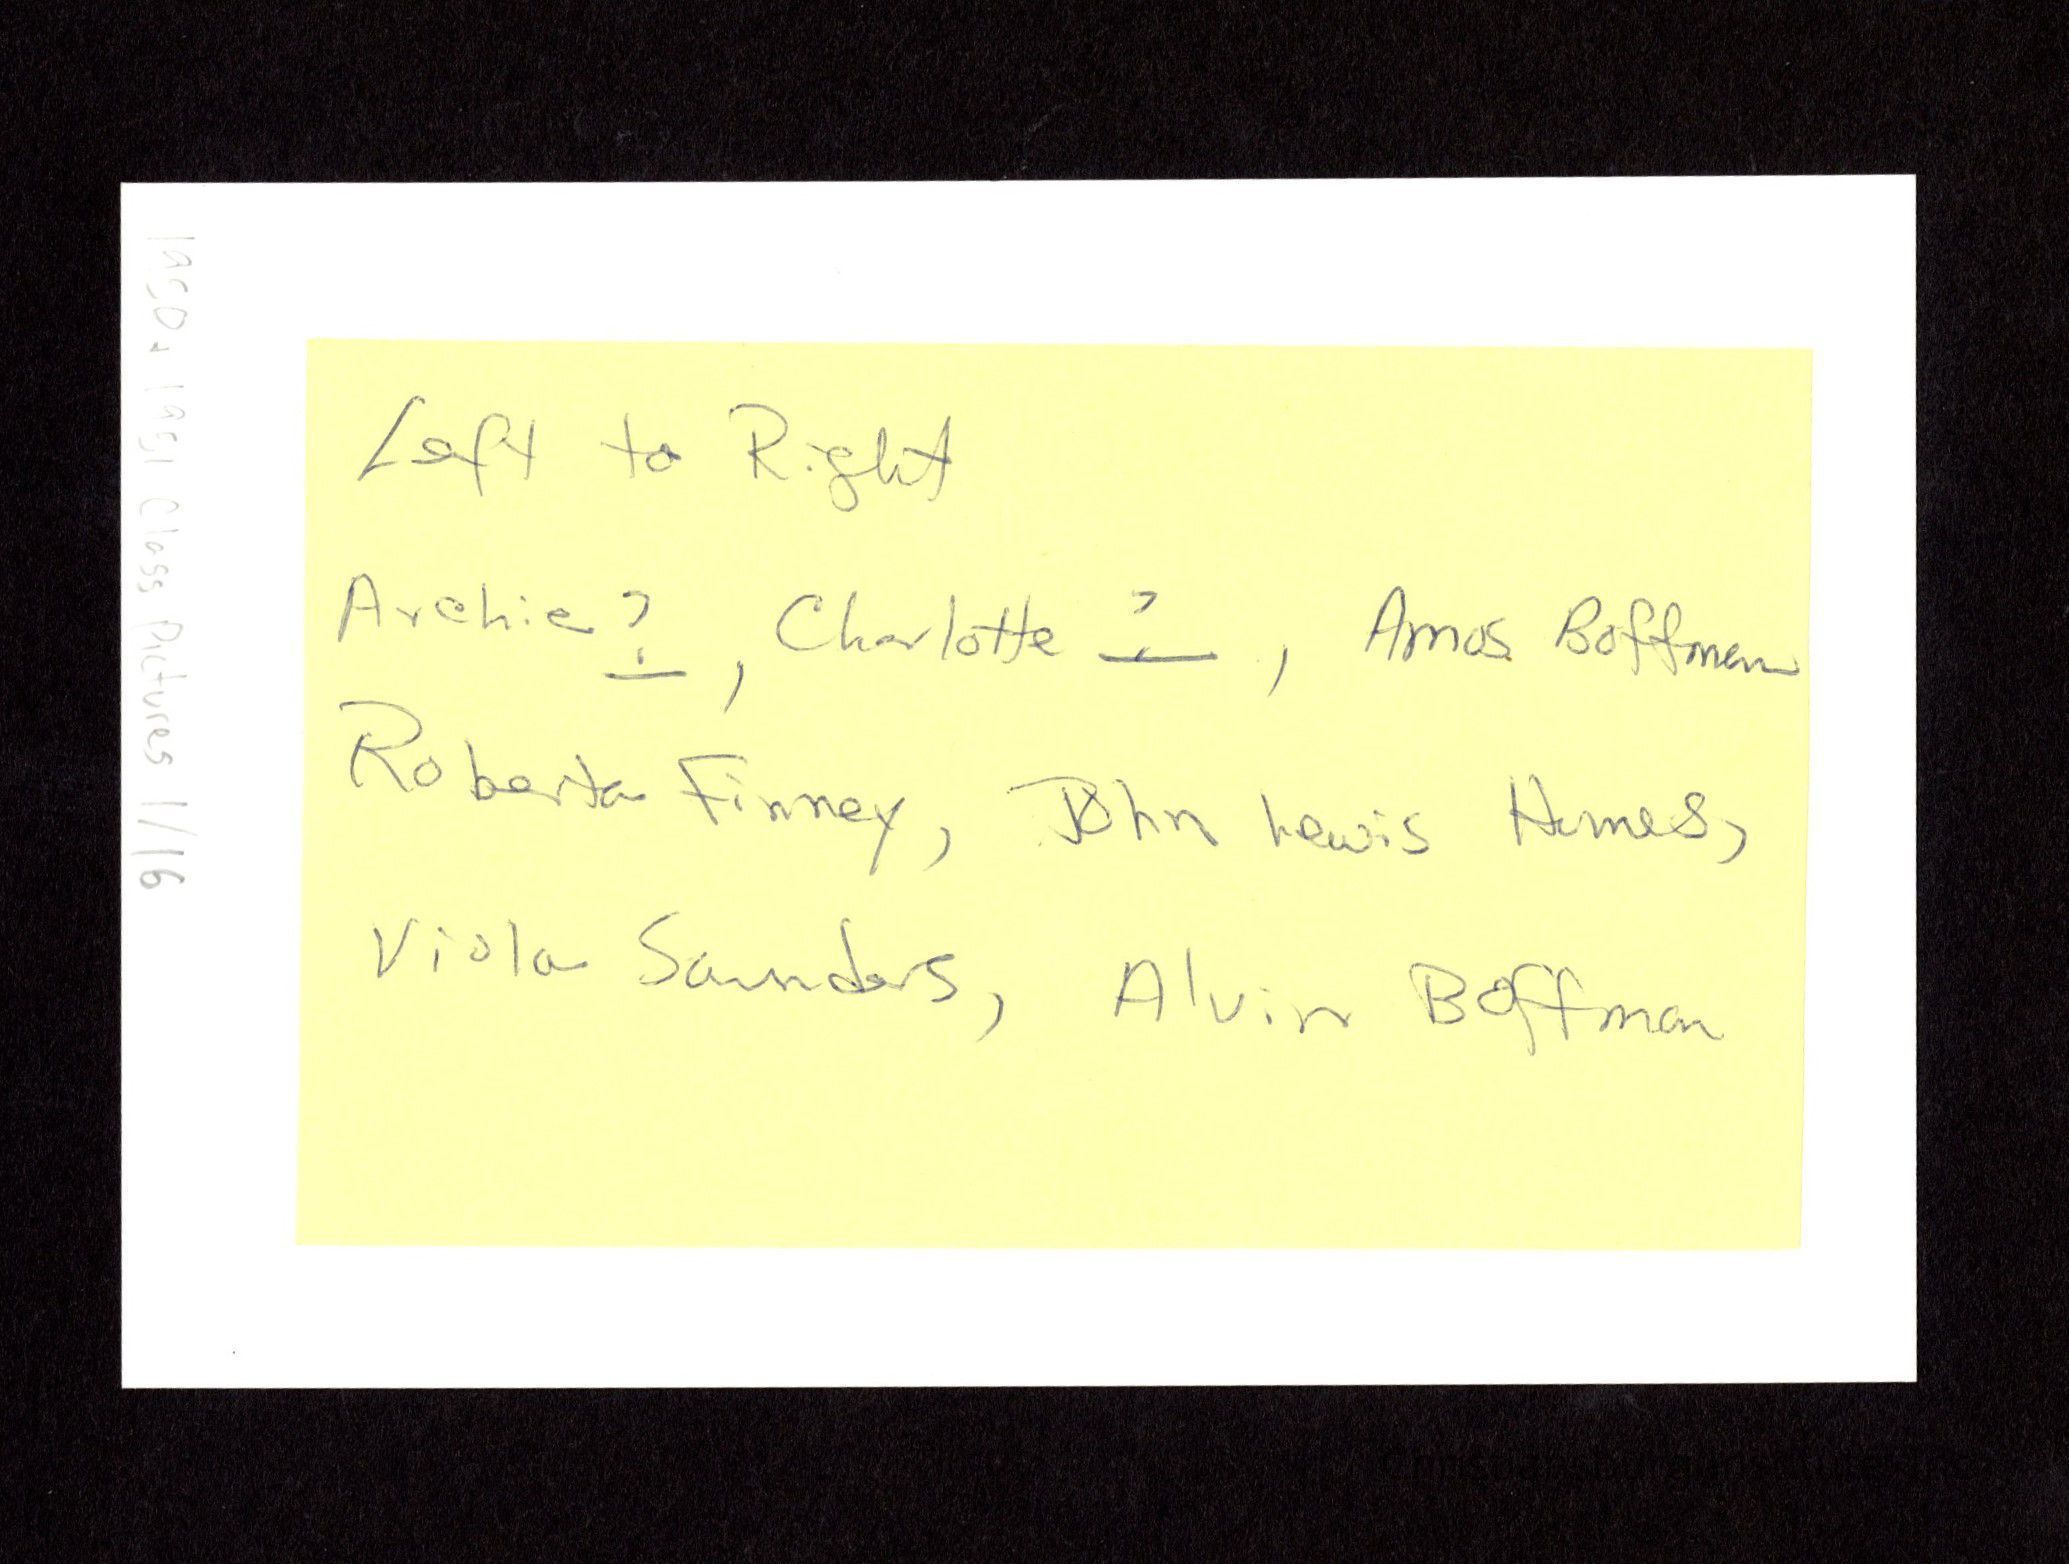 1950 & 1951 Class Pictures 1/16
Left to Right
Archie ?, Charlotte ?, Amos Boffman
Roberta Finney, John Lewis Humes,
Viola Saunders, Alvin Boffman